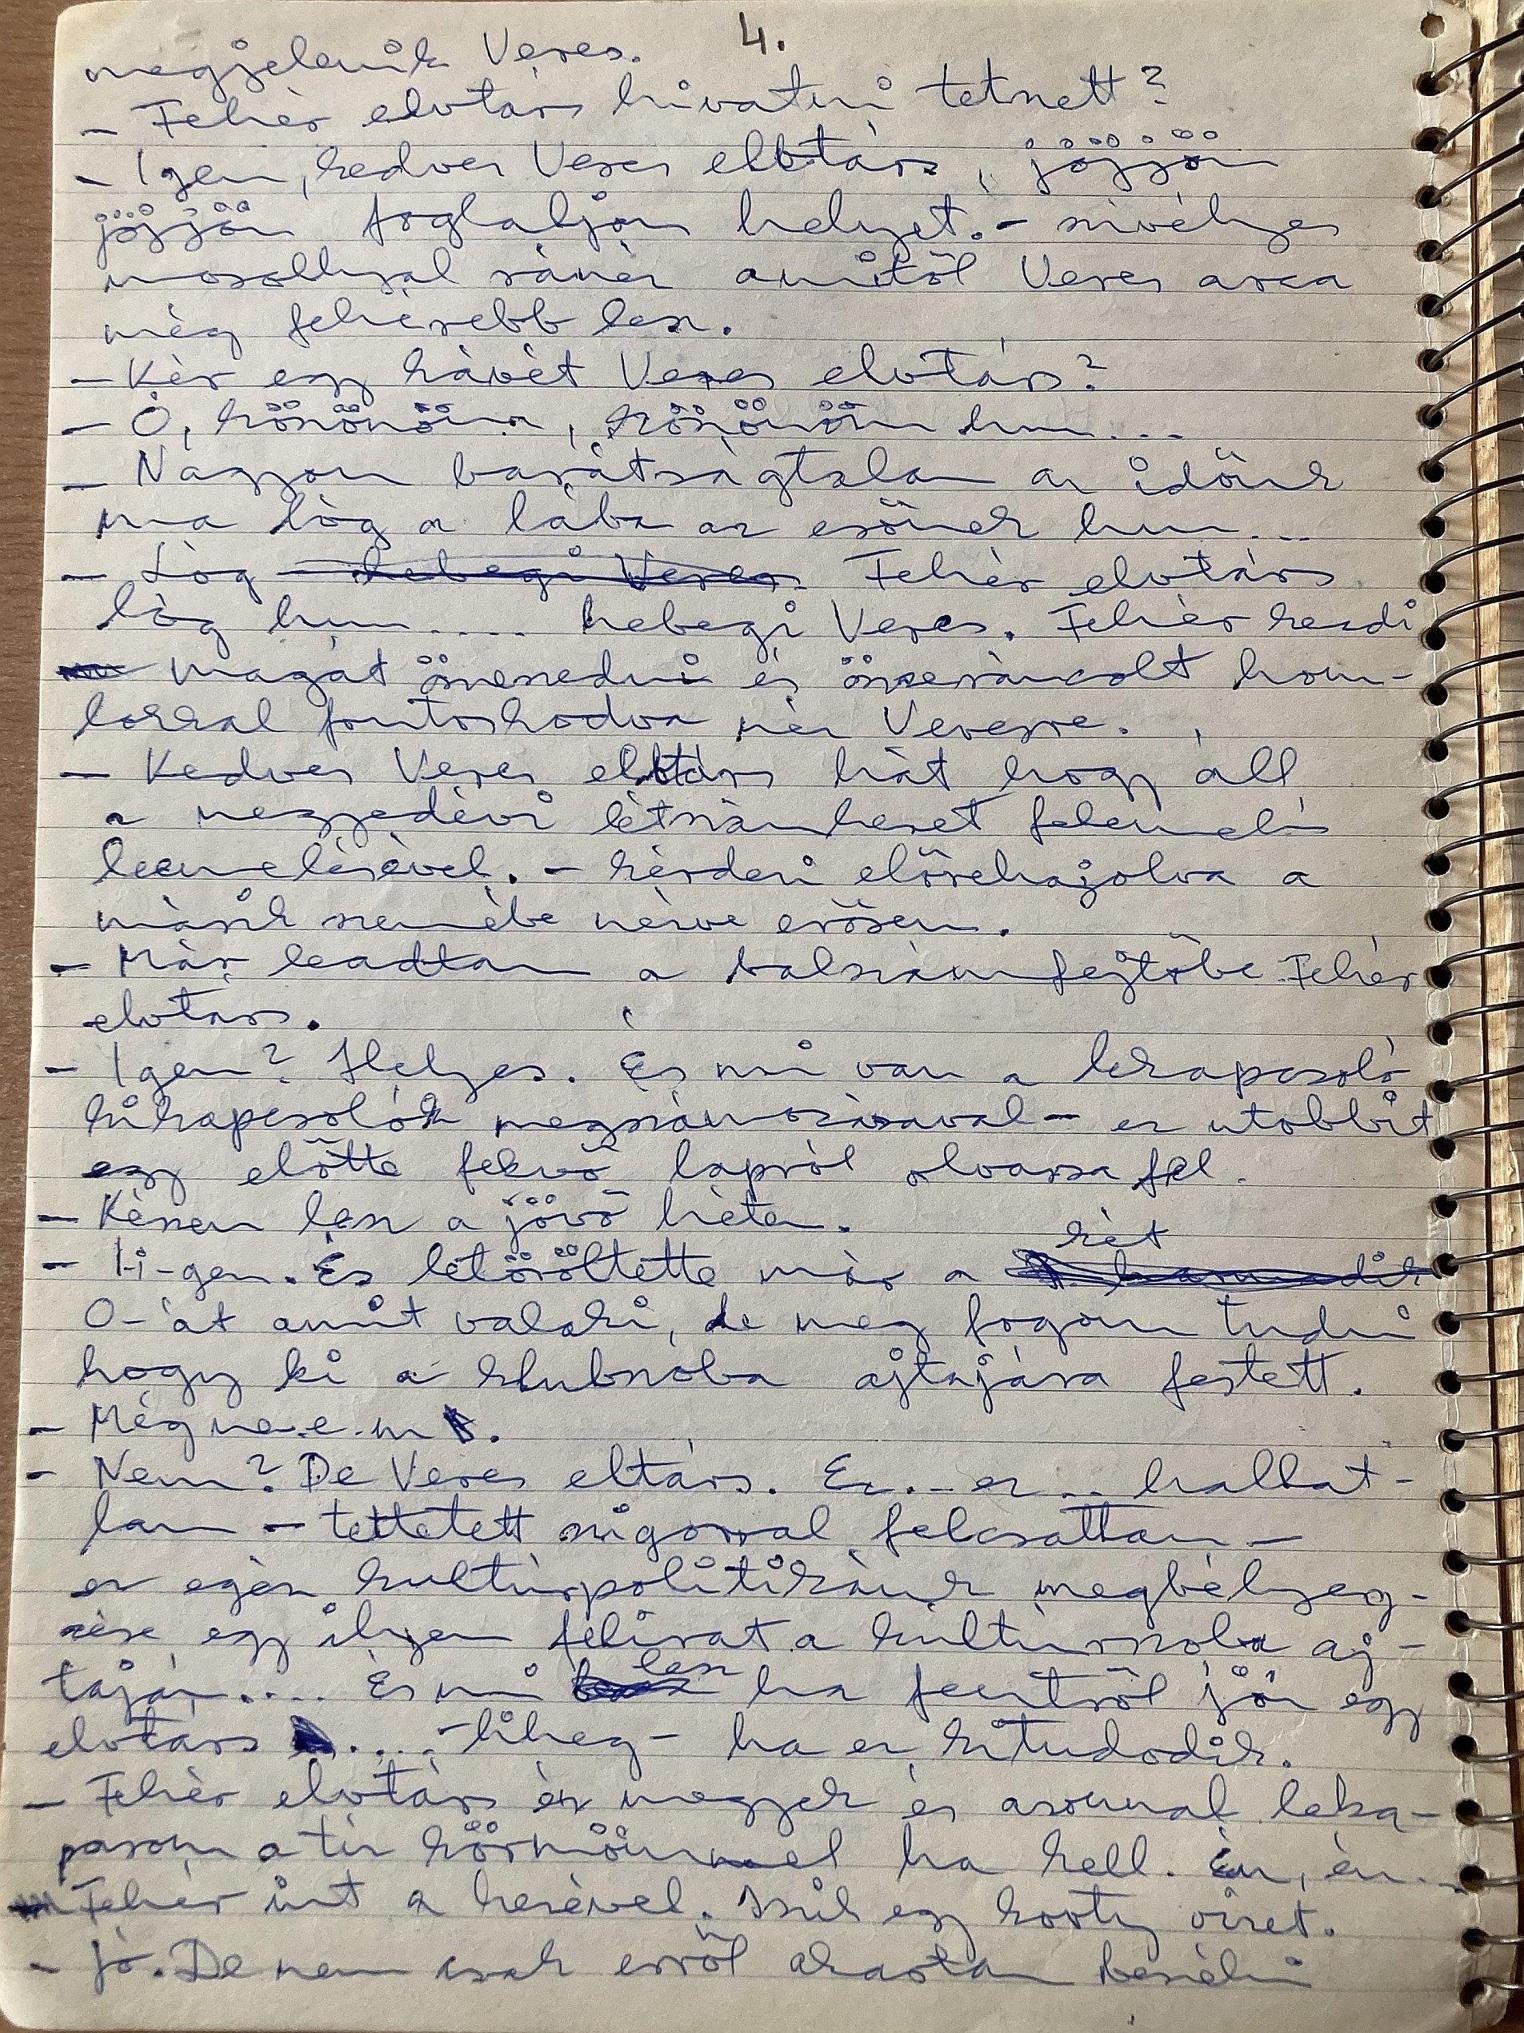 4.
megjelenik Veres.
- Fehér elvtárs hivatni tetszett?
- Igen, kedves Veres elvtárs, jöjjön
jöjjön foglaljon helyet. - szivélyes
mosollyal ránéz amitől Veres arca
még fehérebb lesz.
- Kér egy kávét Veres elvtárs?
- Ó, köszönöm, köszönöm hm...
- Nagyon barátságtalan az időnk
ma lóg a lába az esőnek hm...
- Lóg - hebegi Veres. Fehér elvtárs
lóg hm.... hebegi Veres. Fehér kezdi
magát összeszedni és összeráncolt hom-
lokkal fontoskodva néz Veresre.
- Kedves Veres elvtárs hát hogy áll
a negyedévi létszámkeret felemelés
leemelésével. - kérdezi előrehajolva a
másik szemébe nézve erősen.
- Már leadtam a balszámfejtőbe Fehér
elvtárs.
- Igen? Helyes. És mi van a lekapcsoló
kikapcsolók megszámozásával - ez utobbit
egy előtte fekvő lapról olvassa fel.
- Készen lesz a jövő héten.
- I-i-gen. És letöröltette már a két
O-át amit valaki, de meg fogom tudni
hogy ki a klubszoba ajtajára festett.
- Még ne.e.m.
- Nem? De Veres eltárs. Ez... ez... hallat-
lan - tettetett szigorral felcsattan -
ez egész kultúrpolitikánk megbélyeg-
zése egy ilyen felirat a kultúrszoba aj-
taján.... És mi lesz ha fentről jön egy
elvtárs .... - liheg - ha ez kitudodik.
- Fehér elvtárs én megyek és azonnal leka-
parom a tiz körmömmel ha kell. Én, én...
Fehér int a kezével. Iszik egy korty vizet.
- Jó. De nem csak erről akartam beszélni